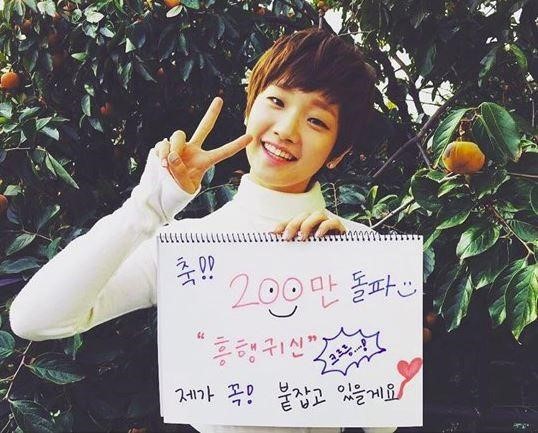 축!! 200만 돌파
"흥행귀신" 크르릉...!
제가 꼭! 붙잡고 있을게요